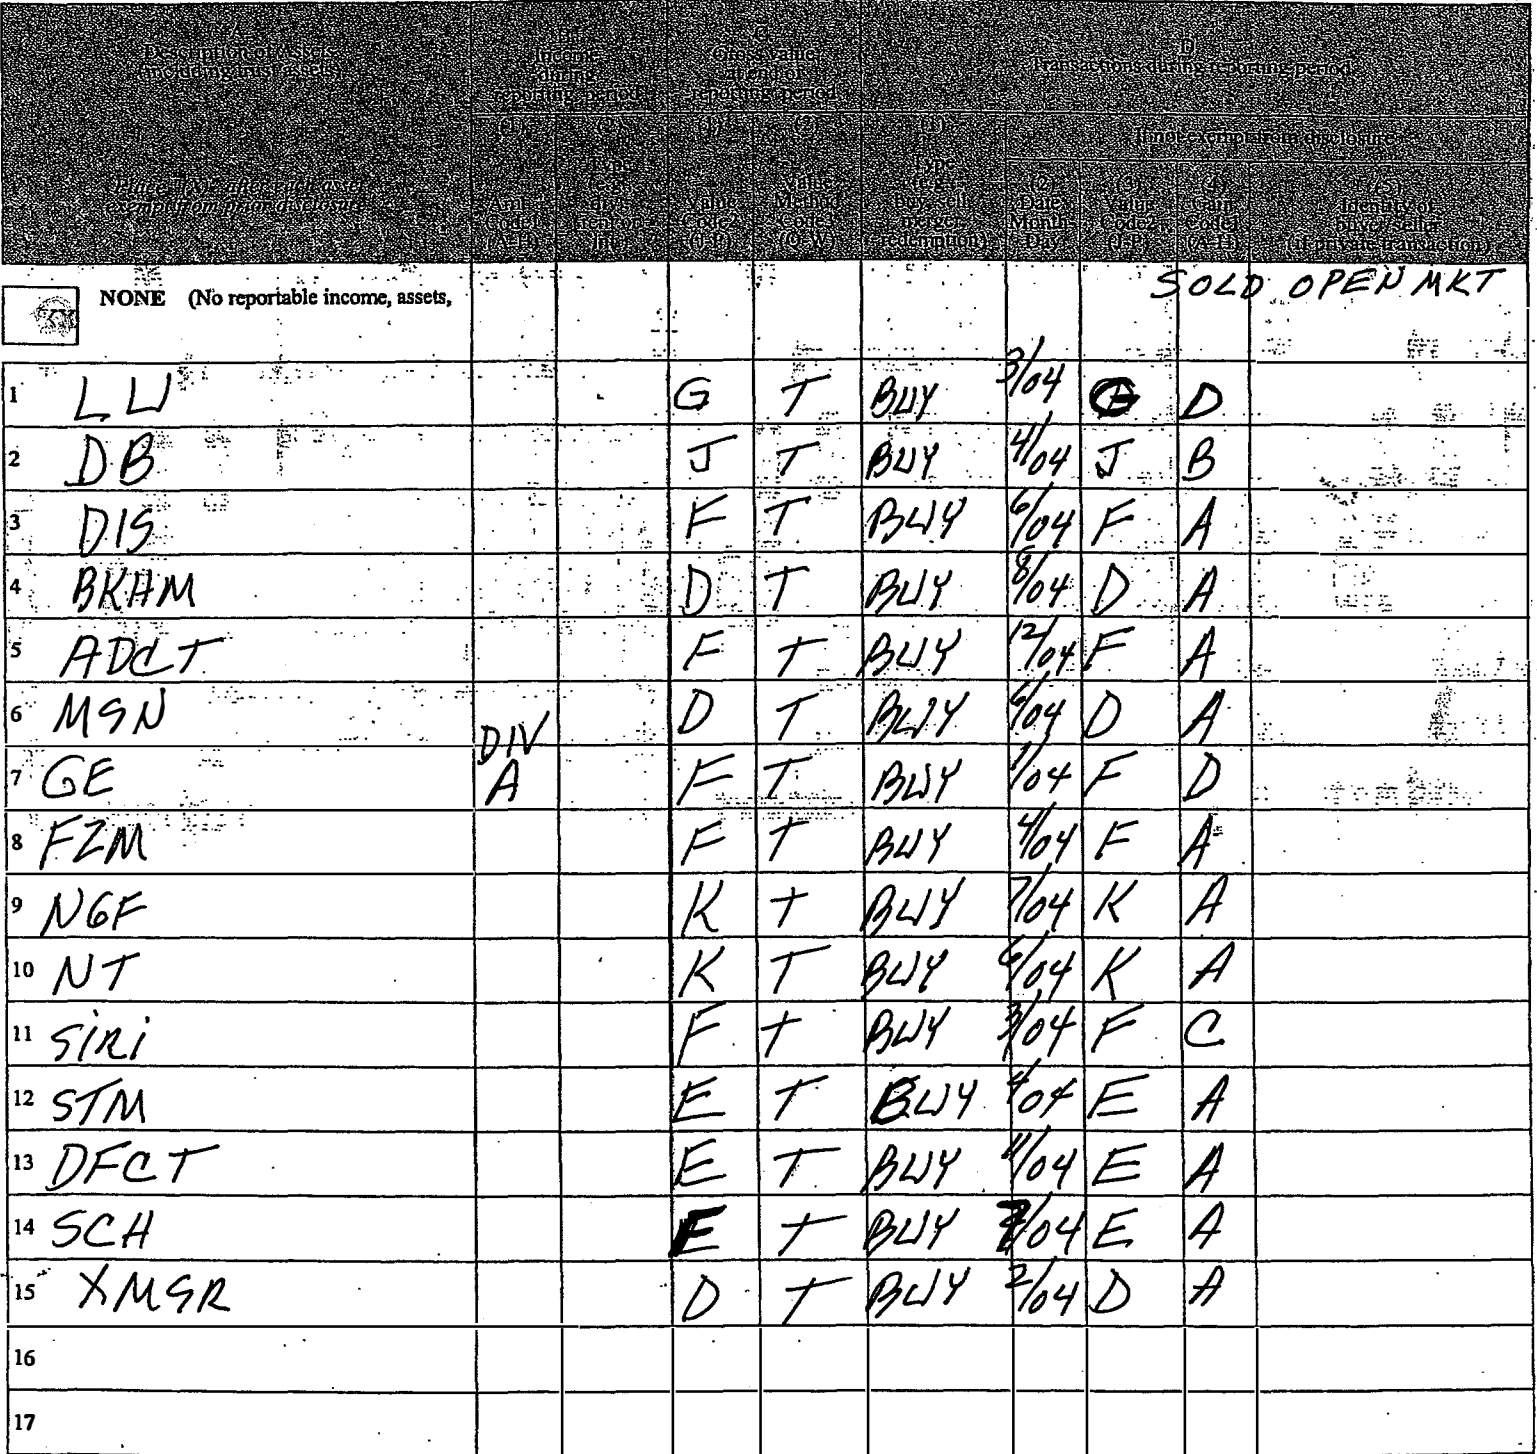 A
Description of Assets
(including trust assets)
Place "(X)" after each asset
exempt from prior disclosure
Income
during
reporting period
(1)
Amt.
Code1
(A-H)
(2)
Type
(e.g.
div.
rent or
int.)
C
Gross value
at end of
reporting period
(1)
Value
Code2
(J-P)
(2)
Value
Method
Code3
(Q-W)
D
Transactions during reporting period
(1)
Type
(e.g.
buy, sell,
merger,
redemption)
If not exempt from disclosure
(2)
Date
Month-
Day
(3)
Value
Code2
(J-P)
(4)
Gain
Code1
(A-H)
(5)
Identity of
buyer/seller
(if private transaction)
NONE (No reportable income, assets,
SOLD OPEN MKT
1 LU G T BUY 3/04 G D
2 DB J T BUY 4/04 J B
3 DIS F T BUY 6/04 F A
4 BKHM D T BUY 8/04 D A
5 ADCT F T BUY 12/04 F A
6 MSN D T BUY 6/04 D A
7 GE DIV A F T BUY 1/04 F D
8 FZM F T BUY 4/04 F A
9 NGF K T BUY 7/04 K A
10 NT K T BUY 6/04 K A
11 SiRi F T BUY 3/04 F C
12 STM E T BUY 4/04 E A
13 DFCT E T BUY 11/04 E A
14 SCH E T BUY 7/04 E A
15 XMSR D T BUY 2/04 D A
16
17